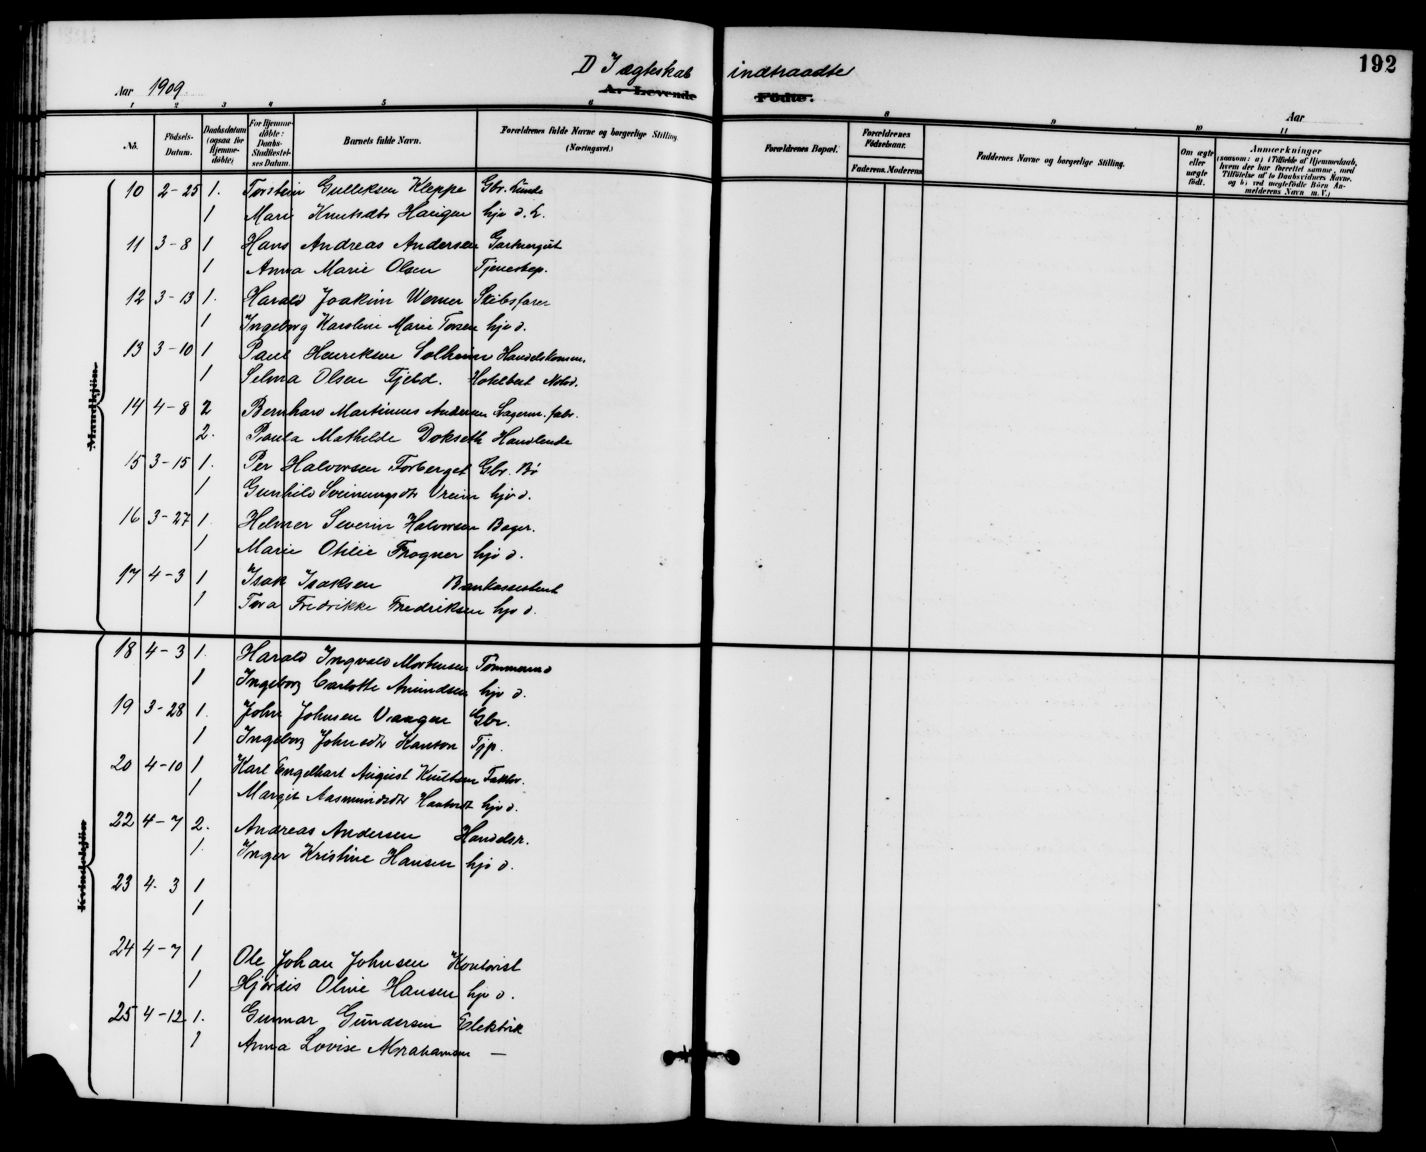 192
D I ægteskab indtraadte
Aar 1909
A. Levende Födte.
Aar
1 2 3 4 5 6 8 9 10 11
No.
Födsels-Datum.
Daabsdatum (ogsaa for Hjemme-döbte)
For Hjemme-döbte: Daabs-Stadfæstel-ses Datum.
Barnets fulde Navn.
Forældrenes fulde Navne og borgerlige Stilling. (Næringsvei.)
Forældrenes Bopæl.
Forældrenes Födselsaar.
Faderens. Moderens
Faddernes Navne og borgerlige Stilling.
Om ægte eller uægte födt.
Anmærkninger
(saasom: a) i Tilfælde af Hjemmedaab, hvem der har forrettet samme, med Tilföielse af to Daabsvidners Navne, og b) ved uægtefödte Börn An-melderens Navn m. V.)
Mandkjön
10 2-25 1. Torstein Gulleksen Kleppe Gbr. Lunde
1 Mari Knutsdtr Haugen hjv d. L.
11 3-8 1 Hans Andreas Andersen Gartnergut
1 Anna Marie Olsen Tjenestep.
12 3-13 1. Harald Joakim Werner Skibsfører
1 Ingeborg Karoline Marie Torsen hjv d.
13 3-10 1 Paul Henriksen Solheim
1 Selma Olsen Fjeld.
14 4-8 2 Bernhard Martinius Andersen
2. Paula Mathilde Dokseth Handlende
15 3-15 1. Per Halvorsen Forberget Gbr. Bø
1 Gunhild Sveinungsdtr Vreim hjv d.
16 3-27 1. Helmer Severin Halvorsen Bager.
1 Marie Otilie Frogner hjv d.
17 4-3 1 Isak Isaksen Bankassistent
1 Tora Fredrikke Fredriksen hjv d.
Kvindekjön
18 4-3 1. Harald Ingvald Mortensen Tømmermd
1 Ingeborg Carlotte Amundsen hjv d.
19 3-28 1. John Johnsen Vaagen Gbr.
1 Ingeborg Johnsdtr Tjp.
20 4-10 1 Karl Engelhart August Knutsen Faktor.
1 Margit Aasmundsdtr hjv d.
22 4-7 2. Andreas Andersen Handelsr.
1. Inger Kristine Hansen hjv d.
23 4-3 1
1
24 4-7 1 Ole Johan Johnsen Kontorist
1 Hjørdis Olive Hansen hjv d.
25 4-12 1. Gunnar Gundersen Elektrik
1 Anna Lovise Abrahamsen —